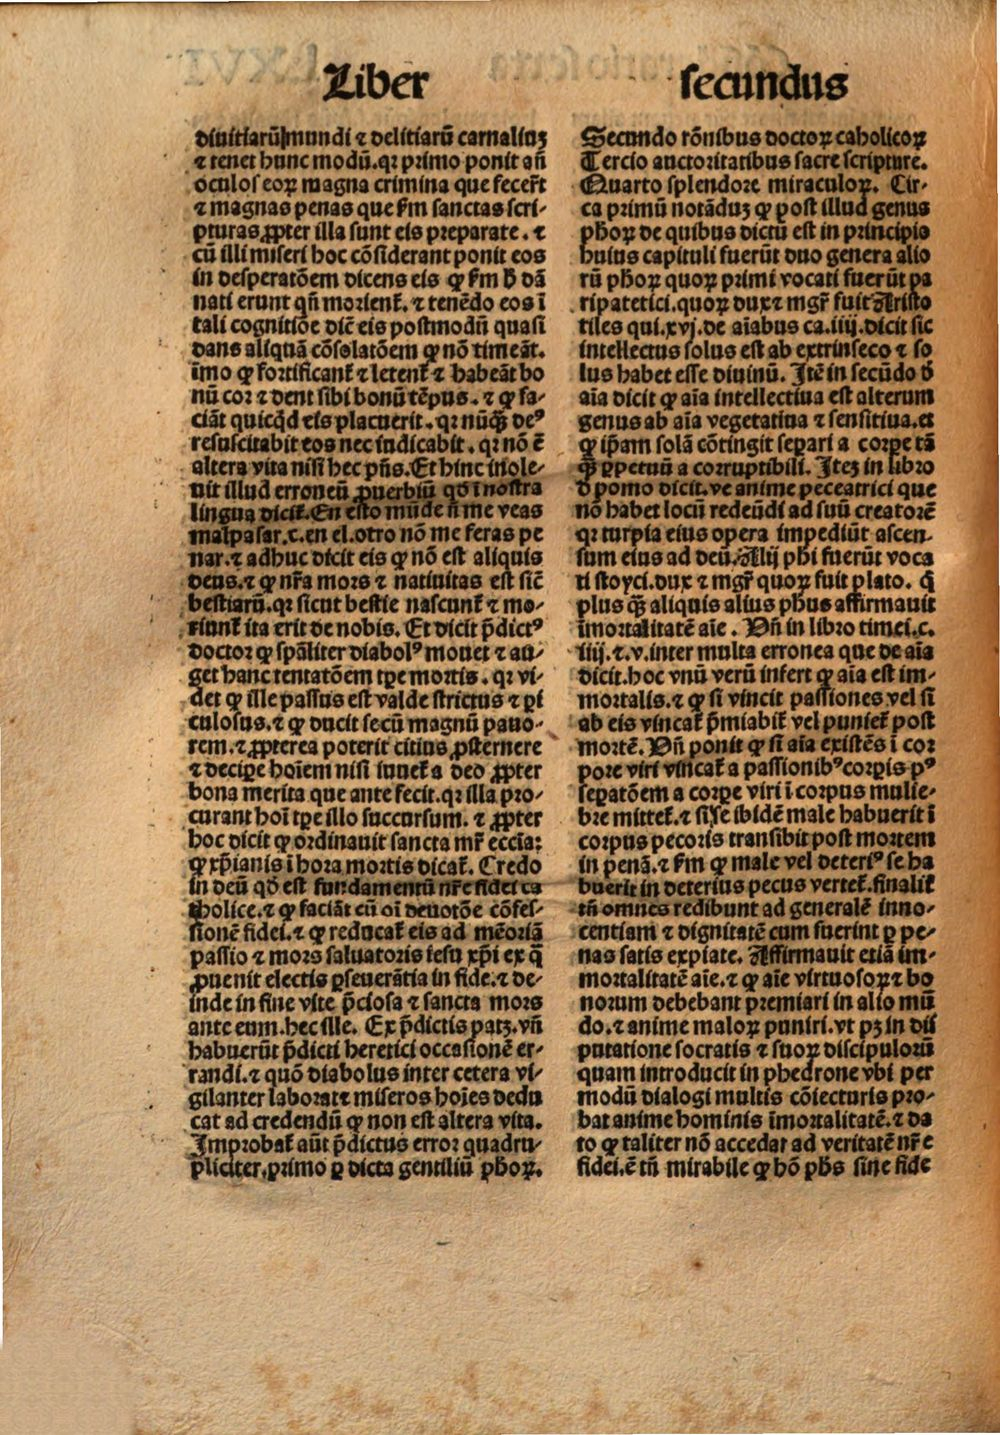 Liber secundus
diuitiarū mundi ⁊ delitiarū carnaliuꝫ
⁊ tenet hunc modū.qꝛ primo ponit añ
oculos eoꝝ magna crimina que fecerūt
⁊ magnas penas que ẜm sanctas scri-
pturas ꝓpter illa sunt eis preparate. ⁊
cū illi miseri hoc cōsiderant ponit eos
in desperatōem dicens eis ꝙ ẜm ħ dā
nati erunt qñ morient̃. ⁊ tenēdo eos ī
tali cognitiōe dic̄ eis postmodū quasi
dans aliquā cōsolatōem ꝙ nō timeāt.
īmo ꝙ fortificant̃ ⁊ letent̃ ⁊ habeāt bo
nū cor ⁊ dent sibi bonū tēpus. ⁊ ꝙ fa-
ciāt quicq̄d eis placuerit. qꝛ nūꝙ̄ deꝰ
resuscitabit eos nec iudicabit. qꝛ nō ē
altera vita nisi hec p̄ns. Et hinc inole-
uit illud erroneū ꝓuerbiū qd̄ ī nostra
lingua dicit̃. En esto mūde ñ me veas
mal pasar.c.en el.otro nō me feras pe
nar.⁊ adhuc dicit eis ꝙ nō est aliquis
deus.⁊ ꝙ nr̄a mors ⁊ natiuitas est sic̄
bestiarū.qꝛ sicut bestie nascunt̃ ⁊ mo-
riunt̃ ita erit de nobis. Et dicit p̄dictꝰ
doctor ꝙ sp̄aliter diabolꝰ mouet ⁊ au-
get hanc tentatōem tp̄e mortis. qꝛ vi-
det ꝙ ille passus est valde strictus ⁊ ꝑi
culosus.⁊ ꝙ ducit secū magnū pauo-
rem.⁊ ꝓpterea poterit citius ꝓsternere
⁊ decipe hoīem nisi iuuet̃ a deo ꝓpter
bona merita que ante fecit.qꝛ illa pro-
curant hoī tp̄e illo succursum. ⁊ ꝓpter
hoc dicit ꝙ ordinauit sancta mr̄ eccīa:
ꝙ xp̄ianis ī hora mortis dicat̃. Credo
in deū qd̄ est fundamentū nr̄e fidei ca
tholice.⁊ ꝙ faciāt cū oī deuotōe cōfes-
sionē fidei.⁊ ꝙ reducat̃ eis ad mēoriā
passio ⁊ mors saluatoris iesu xp̄i ex q̄
ꝓuenit electis ꝑseuerātia in fide.⁊ de-
inde in fine vite p̄ciosa ⁊ sancta mors
ante eum.hec ille. Ex p̄dictis patꝫ.vñ
habuerūt p̄dicti heretici occasionē er-
randi.⁊ quō diabolus inter cetera vi-
gilanter laborat ⁊ miseros hoīes dedu
cat ad credendū ꝙ non est altera vita.
Improbat̃ aūt p̄dictus error quadru-
pliciter.primo ꝑ dicta gentiliū ph̄oꝝ.
Secundo rōnibus doctoꝝ caholicoꝝ
Tercio auctoritatibus sacre scripture.
Quarto splendore miraculoꝝ. Cir-
ca primū notāduꝫ ꝙ post illud genus
ph̄oꝝ de quibus dictū est in principio
huius capituli fuerūt duo genera alio
rū ph̄oꝝ quoꝝ primi vocati fuerūt pa
ripatetici.quoꝝ dux ⁊ mgr̄ fuit Aristo
tiles qui.xvj.de aīabus ca.iiij.dicit sic
intellectus solus est ab extrinseco ⁊ so
lus habet esse diuinū. Itē in secūdo đ
aīa dicit ꝙ aīa intellectiua est alterum
genus ab aīa vegetatiua ⁊ sensitiua.et
ꝙ ip̄am solā cōtingit separi a corpe tā
ꝙ̄ ꝑpetuū a corruptibili. Iteꝫ in libro
đ pomo dicit.ve anime peccatrici que
nō habet locū redeūdi ad suū creatorē
qꝛ turpia eius opera impediūt ascen-
sum eius ad deū. Alij phi fuerūt voca
ti stoyci.dux ⁊ mgr̄ quoꝝ fuit plato. q̄
plus ꝙ̄ aliquis alius ph̄us affirmauit
īmortalitatē aīe. Vñ in libro timei.c.
iiij.⁊.v.inter multa erronea que de aīa
dicit.hoc vnū verū infert ꝙ aīa est im-
mortalis.⁊ ꝙ si vincit passiones vel si
ab eis vincat̃ p̄miabit̃ vel puniet̃ post
mortē. Vñ ponit ꝙ si aīa existēs ī cor
pore viri vincat̃ a passionibꝰ corꝑis pꝰ
seꝑatōem a corpe viri ī corpus mulie-
bre mittet̃.⁊ si se ibidē male habuerit ī
corpus pecoris transibit post mortem
in penā.⁊ ẜm ꝙ male vel deteriꝰ se ha
buerit in deterius pecus vertet̃.finalit̃
tñ omnes redibunt ad generalē inno-
centiam ⁊ dignitatē cum fuerint ꝑ pe-
nas satis expiate. Affirmauit etiā im-
mortalitatē aīe.⁊ ꝙ aīe virtuosoꝝ ⁊ bo
norum debebant premiari in alio mū
do.⁊ anime maloꝝ puniri.vt pꝫ in dis
putatione socratis ⁊ suoꝝ discipulorū
quam introducit in phedrone vbi per
modū dialogi multis cōiecturis pro-
bat anime hominis īmortalitatē.⁊ da
to ꝙ taliter nō accedat ad veritatē nr̄e
fidei.ē tñ mirabile ꝙ hō ph̄s sine fide